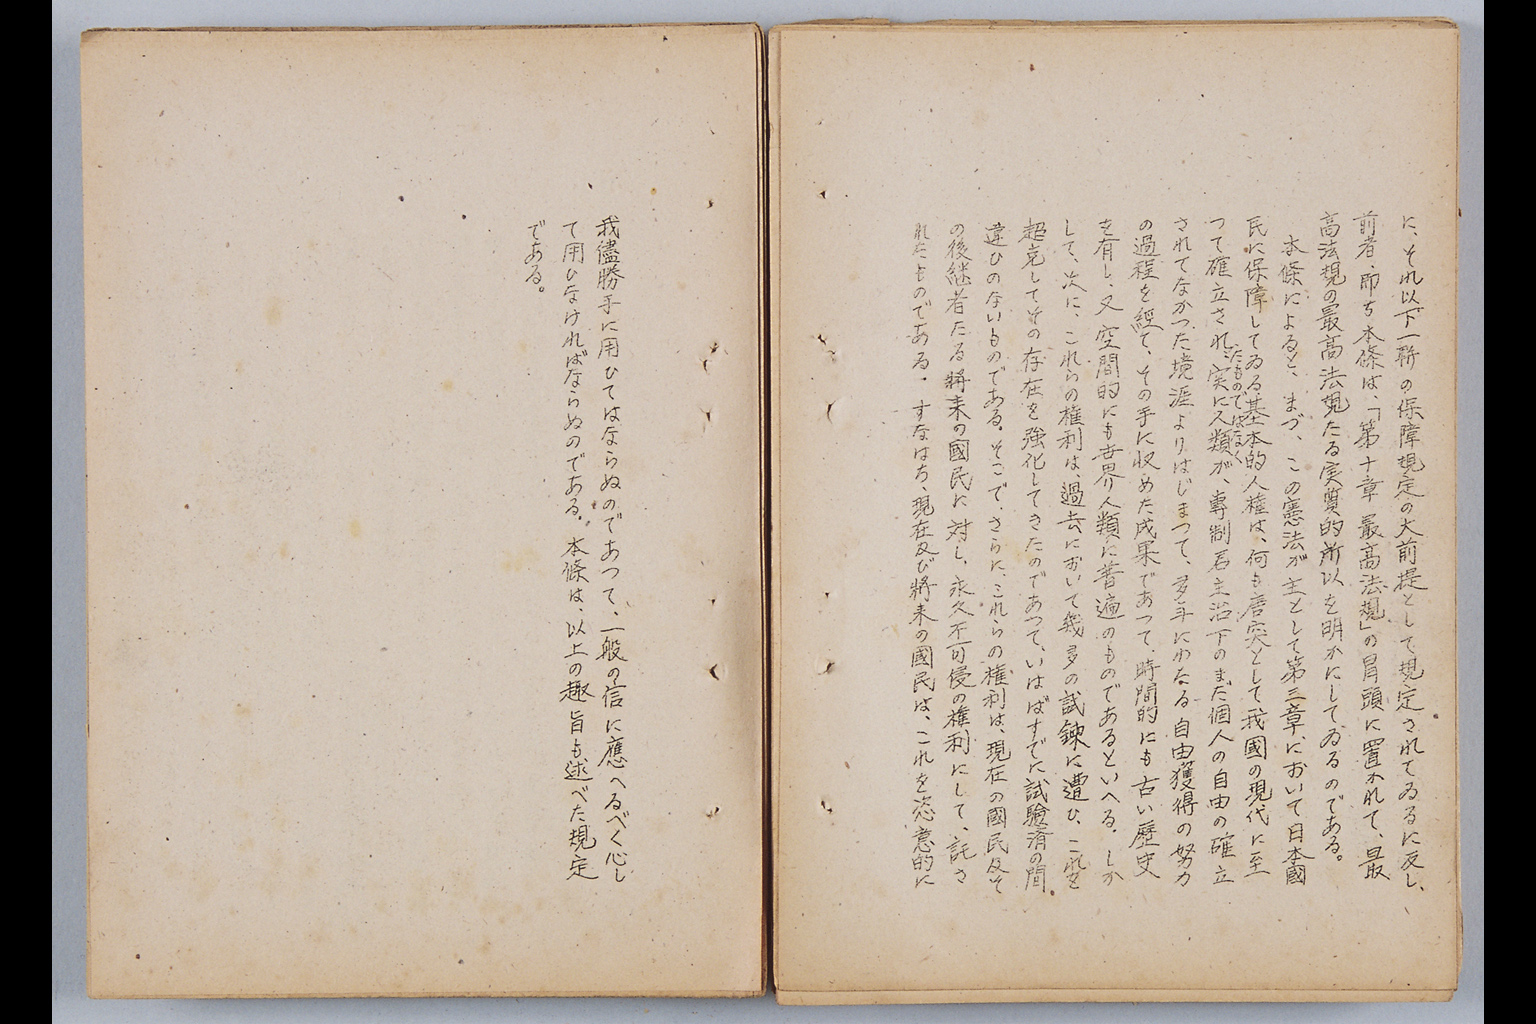 に、それ以下一聯の保障規定の大前提として規定されてゐるに反し、
前者、即ち本條は、「第十章 最高法規」の冐頭に置かれて、最
高法規の最高法規たる実質的所以を明かにしてゐるのである。
本條によると、まづ、この憲法が主として第三章において日本國
民に保障してゐる基本的人権は、何も唐突として我國の現代に至
つて確立されたものではなく、実に人類が、専制君主治下のまだ個人の自由の確立
されてなかつた境涯よりはじまつて、多年にわたる自由獲得の努力
の過程を經て、その手に收めた成果であつて、時間的にも古い歴史
を有し、又空間的にも世界人類に普遍のものであるといへる。しか
して、次に、これらの権利は、過去において幾多の試錬に遭ひ、これを
超克してその存在を強化してきたのであつて、いはばすでに試驗済の間
違ひのないものである。そこで、さらに、これらの権利は、現在の國民及そ
の後継者たる將来の國民に対し、永久不可侵の権利にして、託さ
れたものである。すなはち、現在及び將来の國民は、これを恣意的に
我儘勝手に用ひてはならぬのであつて、一般の信に應へるべく心し
て用ひなければならぬのである。本條は、以上の趣旨も述べた規定
である。